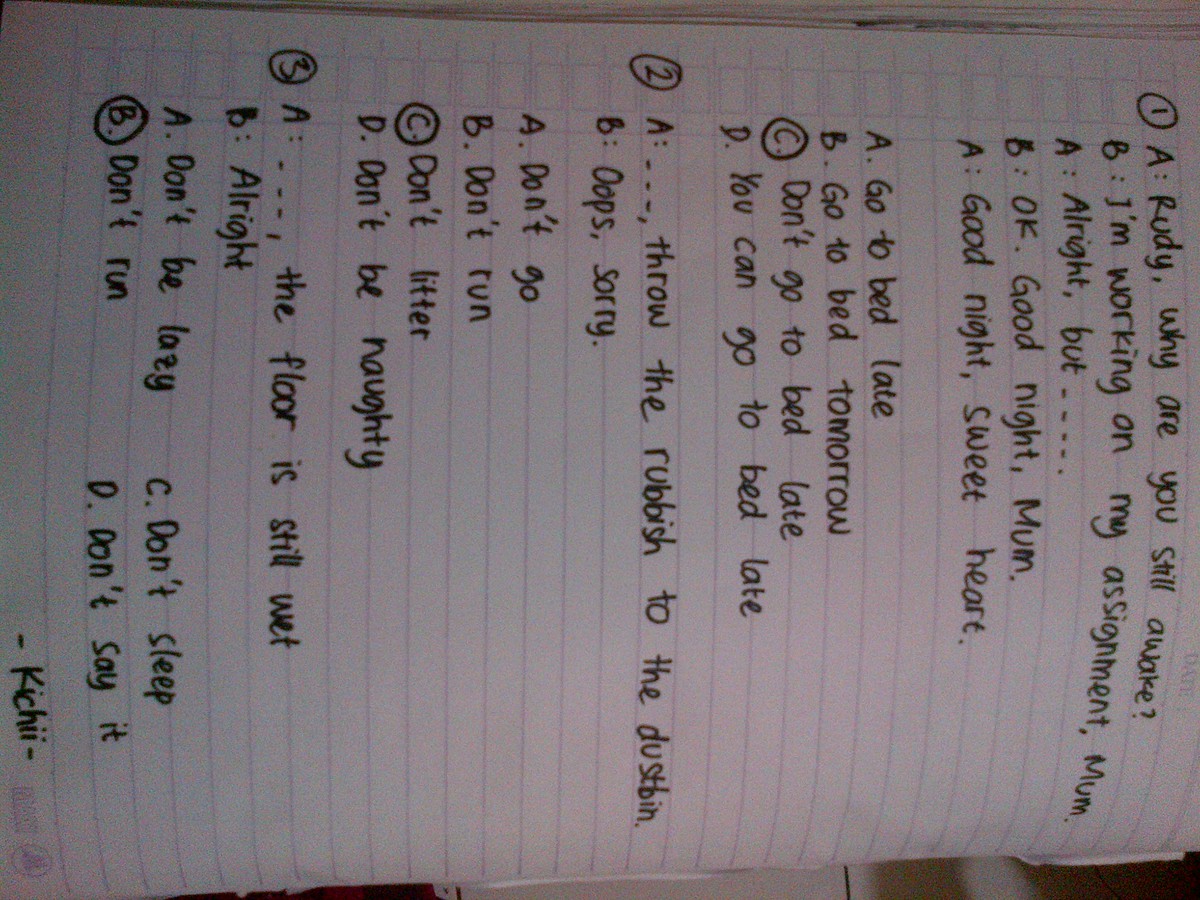 DATE:
① A: Rudy, why are you still awake?
B: I'm working on my assignment, Mum.
A: Alright, but -----.
B: OK. Good night, Mum.
A: Good night, sweet heart.
A. Go to bed late
B. Go to bed tomorrow
C. Don't go to bed late
D. You can go to bed late
② A: ---, throw the rubbish to the dustbin.
B: Oops, sorry.
A. Don't go
B. Don't run
C. Don't litter
D. Don't be naughty
③ A: ---, the floor is still wet
B: Alright
A. Don't be lazy C. Don't sleep
B. Don't run D. Don't say it
- Kichii -